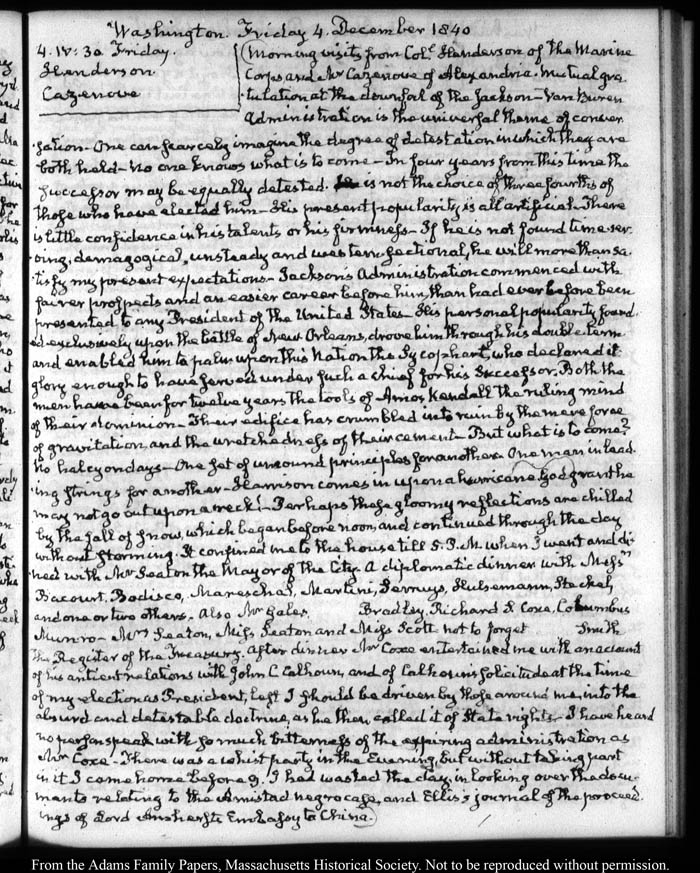 Washington. Friday 4. December 1840
4. IV: 30 Friday.
Henderson
Cazenove
Morning visits from Colt. Henderson of the Marine
Corps and Mr Cazenove of Alexandria. Mutual gra-
tulation at the downfal of the Jackson-Van Buren
Administration is the universal theme of conver
sation- One can scarcely imagine the degree of detestation in which they are
both held- No one knows what is to come- In four years from this time the
Successor may be equally detested. is not the choice of three fourths of
those who have elected him- His present popularity is all artificial. There
is little confidence in his talents or his firmness- If he is not found time-ser-
ving, demagogical, unsteady and western-sectional, he will more than sa-
tisfy my present expectations- Jackson's Administration commenced with
fairer prospects and an easier career before him, than had ever before been
presented to any President of the United States- His personal popularity found
ed exclusively upon the battle of New Orleans, drove him through his double term
and enabled him to palm upon this Nation the Sycophant, who declared it
glory enough to have served under such a chief for his Successor. Both the
men have been for twelve years the tools of Amos Kendall the ruling mind
of their dominion- Their edifice has crumbled into ruin by the mere force
of gravitation, and the wretchedness of their cement- But what is to come?
No halcyon days- One set of unsound principles for another- One man in lead-
ing strings for another- Harrison comes in upon a hurricane God grant he
may not go out upon a wreck!- Perhaps these gloomy reflections are chilled
by the fall of snow, which began before noon, and continued through the day
without storming. It confined me to the house till 5. P.M. when I went and di-
ned with Mr Seaton the Mayor of the City. A diplomatic dinner with Messrs
Bacourt, Bodisco, Mareschal, Martini, Serruys, Hulsemann, Steckel,
and one or two others. Also Mr Gales, Bradley, Richard S Coxe, Columbus
Munro- Mrs Seaton, Miss Seaton and Miss Scott not to forget Smith
the Register of the Treasury. After dinner Mr Coxe entertained me with an account
of his antient relations with John C. Calhoun, and of Calhoun's solicitude at the time
of my election as President, lest I should be driven by those around me, into the
absurd and detestable doctrine, as he then called it of State rights- I have heard
no person speak with so much bitterness of the expiring administration as
Mr Coxe- There was a whist party in the Evening, but without taking part
in it I came home before 9. I had wasted the day, in looking over the docu-
ments relating to the Amistad negro case, and Ellis's journal of the proceed-
ings of Lord Amherst's Embassy to China.
From the Adams Family Papers, Massachusetts Historical Society. Not to be reproduced without permission.